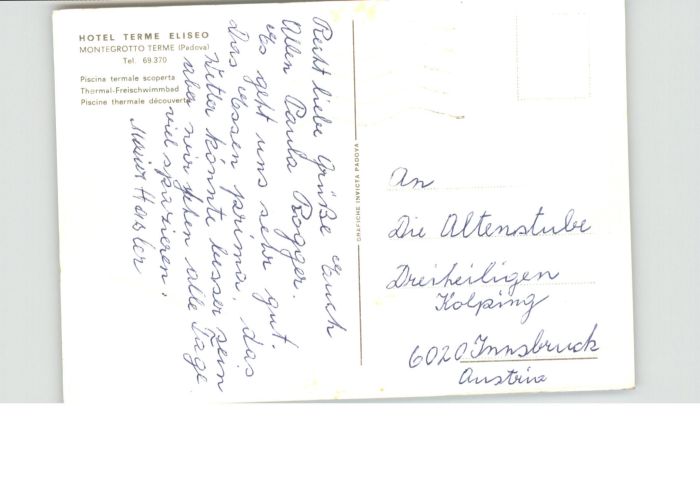 HOTEL TERME ELISEO
MONTEGROTTO TERME (Padova)
Tel. 69.370
Piscina termale scoperta
Thermal-Freischwimmbad
Piscine thermale découverte
Recht liebe Grüße Euch
Allen Paula Rogger.
Es geht uns sehr gut.
Das Essen prima, das
Wetter könnte besser sein
aber wir gehen alle Tage
viel spazieren.
GRAFICHE INVICTA PADOVA
An
Die Altenstube
Dreiheiligen
Kolping
6020 Innsbruck
Austria